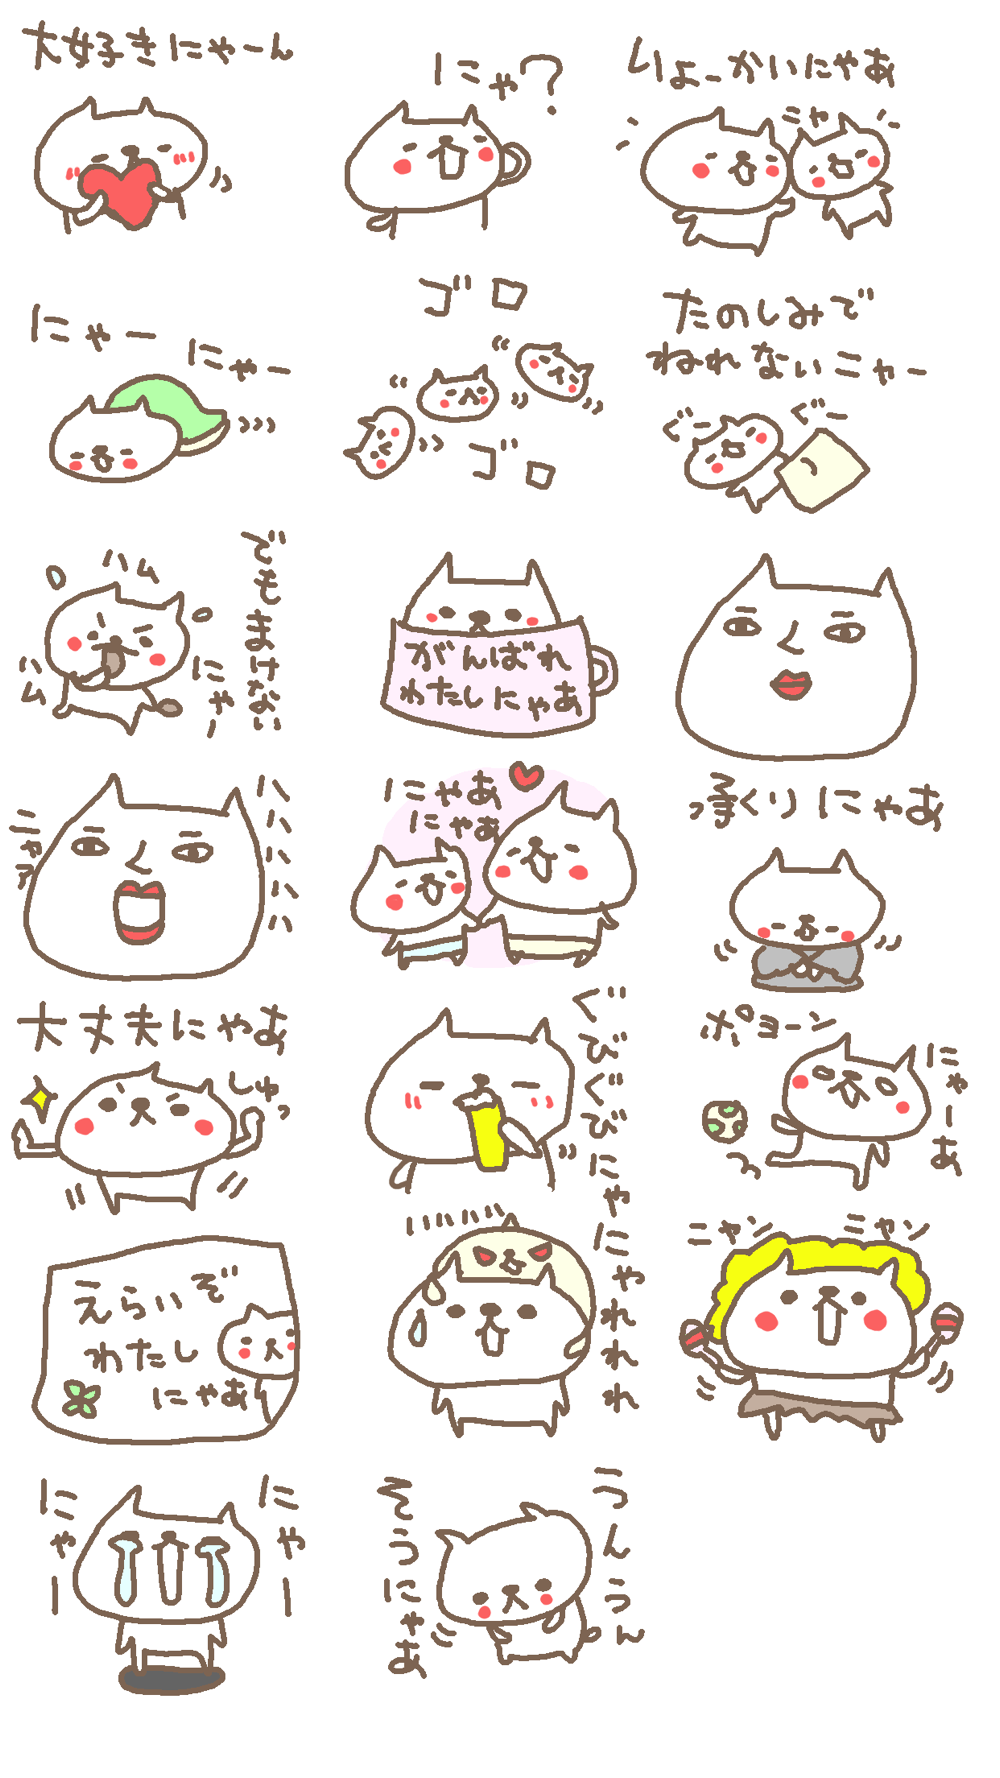 大好きにゃーん
にゃ?
りょーかいにゃあ
ニャ
にゃー
にゃー
ゴロ
ゴロ
たのしみで
ねれないニャー
ぐー
ぐー
ハム
ハム
でもまけない
にゃー
がんばれ
わたしにゃあ
ニャァ
ハハハハハ
にゃあ
にゃあ
承くりにゃあ
大丈夫にゃあ
しゅっ
ぐびぐびにゃ
ポヨーン
にゃーあ
えらいぞ
わたし
にゃあ
にゃれれれ
ニャン
ニャン
にゃー
にゃー
うんうん
そうにゃあ